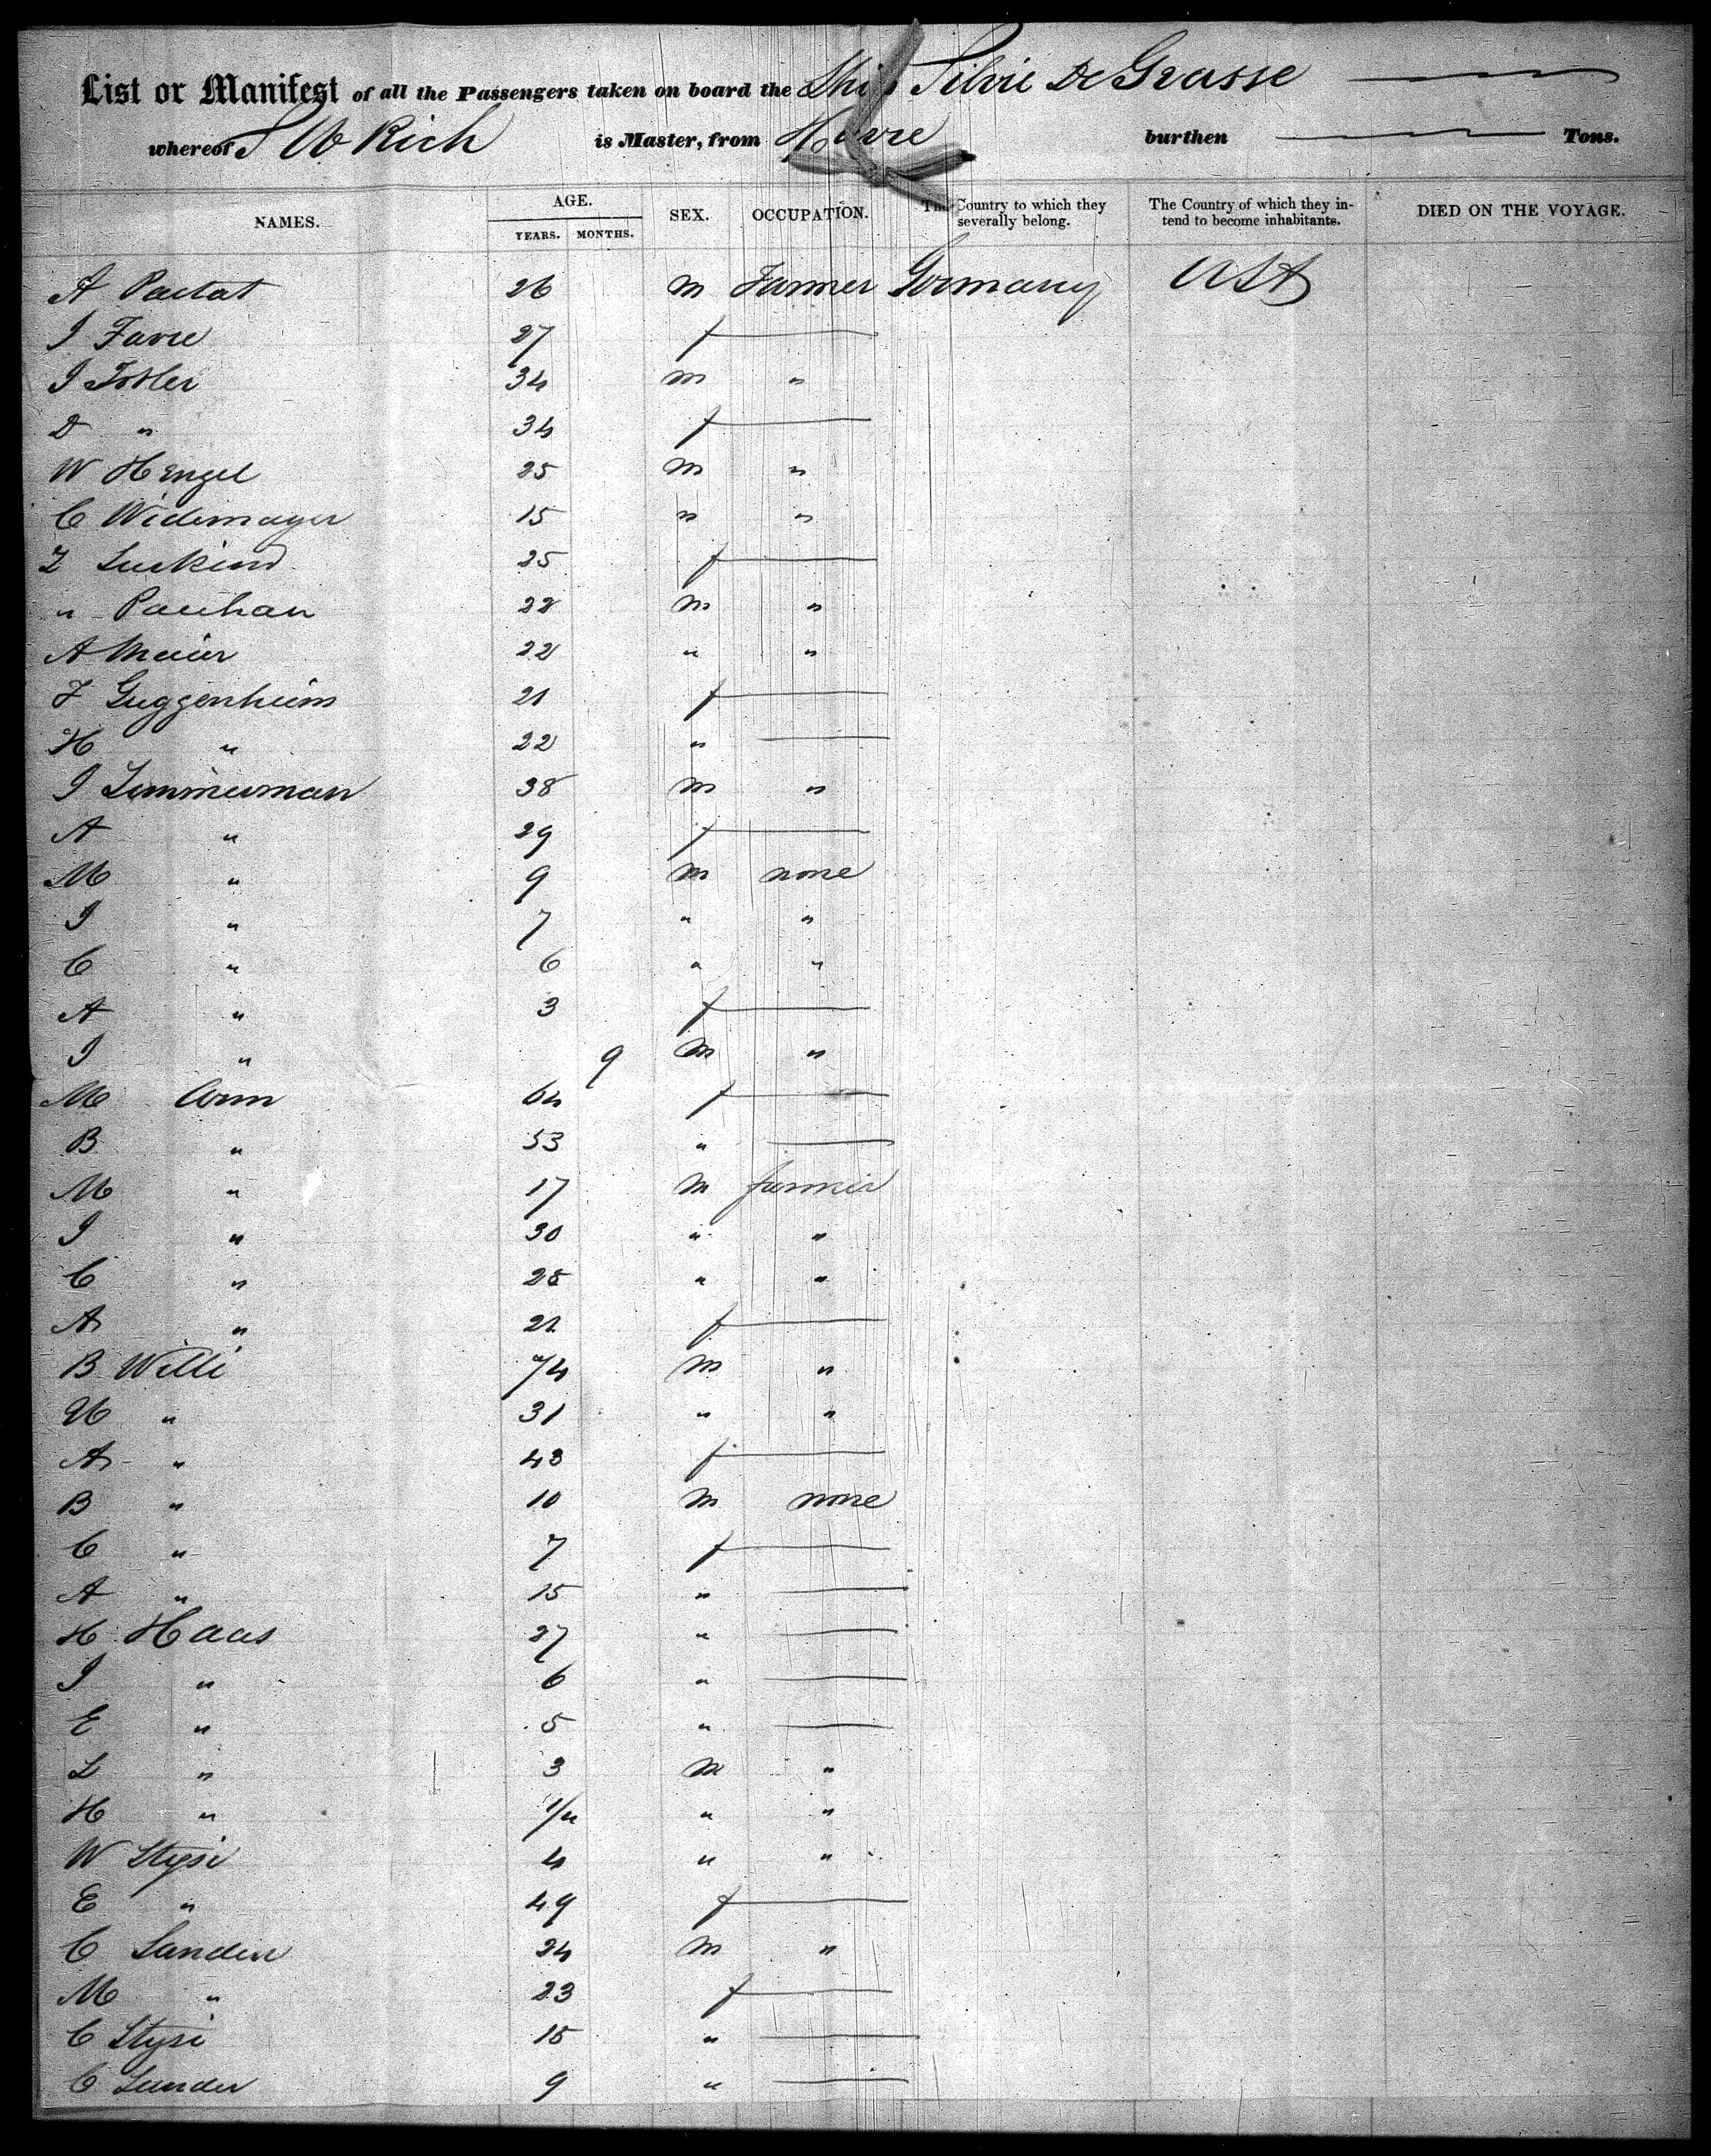 List or Manifest of all the Passengers taken on board the Ship Silvie De Grasse
whereof S W Rich is Master, from Havre burthen Tons.
NAMES. AGE. YEARS. MONTHS. SEX. OCCUPATION. The Country to which they severally belong. The Country of which they intend to become inhabitants. DIED ON THE VOYAGE.
A Pactat 26 m Farmer Germany USA
J Favre 27 f
J 34 m "
D " 34 f
W Hengel 25 m "
C Widemayer 15 " "
Z 25 f
" 22 m "
A Maier 22 " "
F Guggenheim 21 f
H " 22 "
J Zimmerman 38 m "
A " 29 f
M " 9 m none
J " 7 " "
C " 6 " "
A " 3 f
J " 9 m "
M Ann 64 f
B " 53 "
M " 17 m farmer
J " 30 " "
C " 28 " "
A " 21 f
B Willi 74 m "
U " 31 " "
A " 43 f
B " 10 m none
C " 7 f
A " 15 "
H Haas 27 "
J " 6 "
E " 5 "
L " 3 m "
H " " "
W Stysi 4 " "
E " 49 f
C Sander 24 m "
M " 23 f
C Stysi 15 "
C Sander 9 "